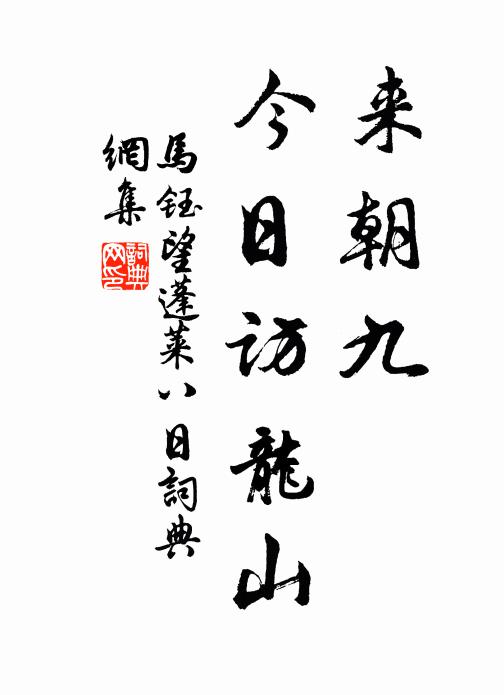 来朝九
今日访龍山
馬鈺望蓬莱八日詞典
網集
詞典网印